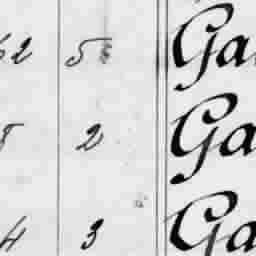 62 5 Ga
8 2 Ga
4 3 Ga